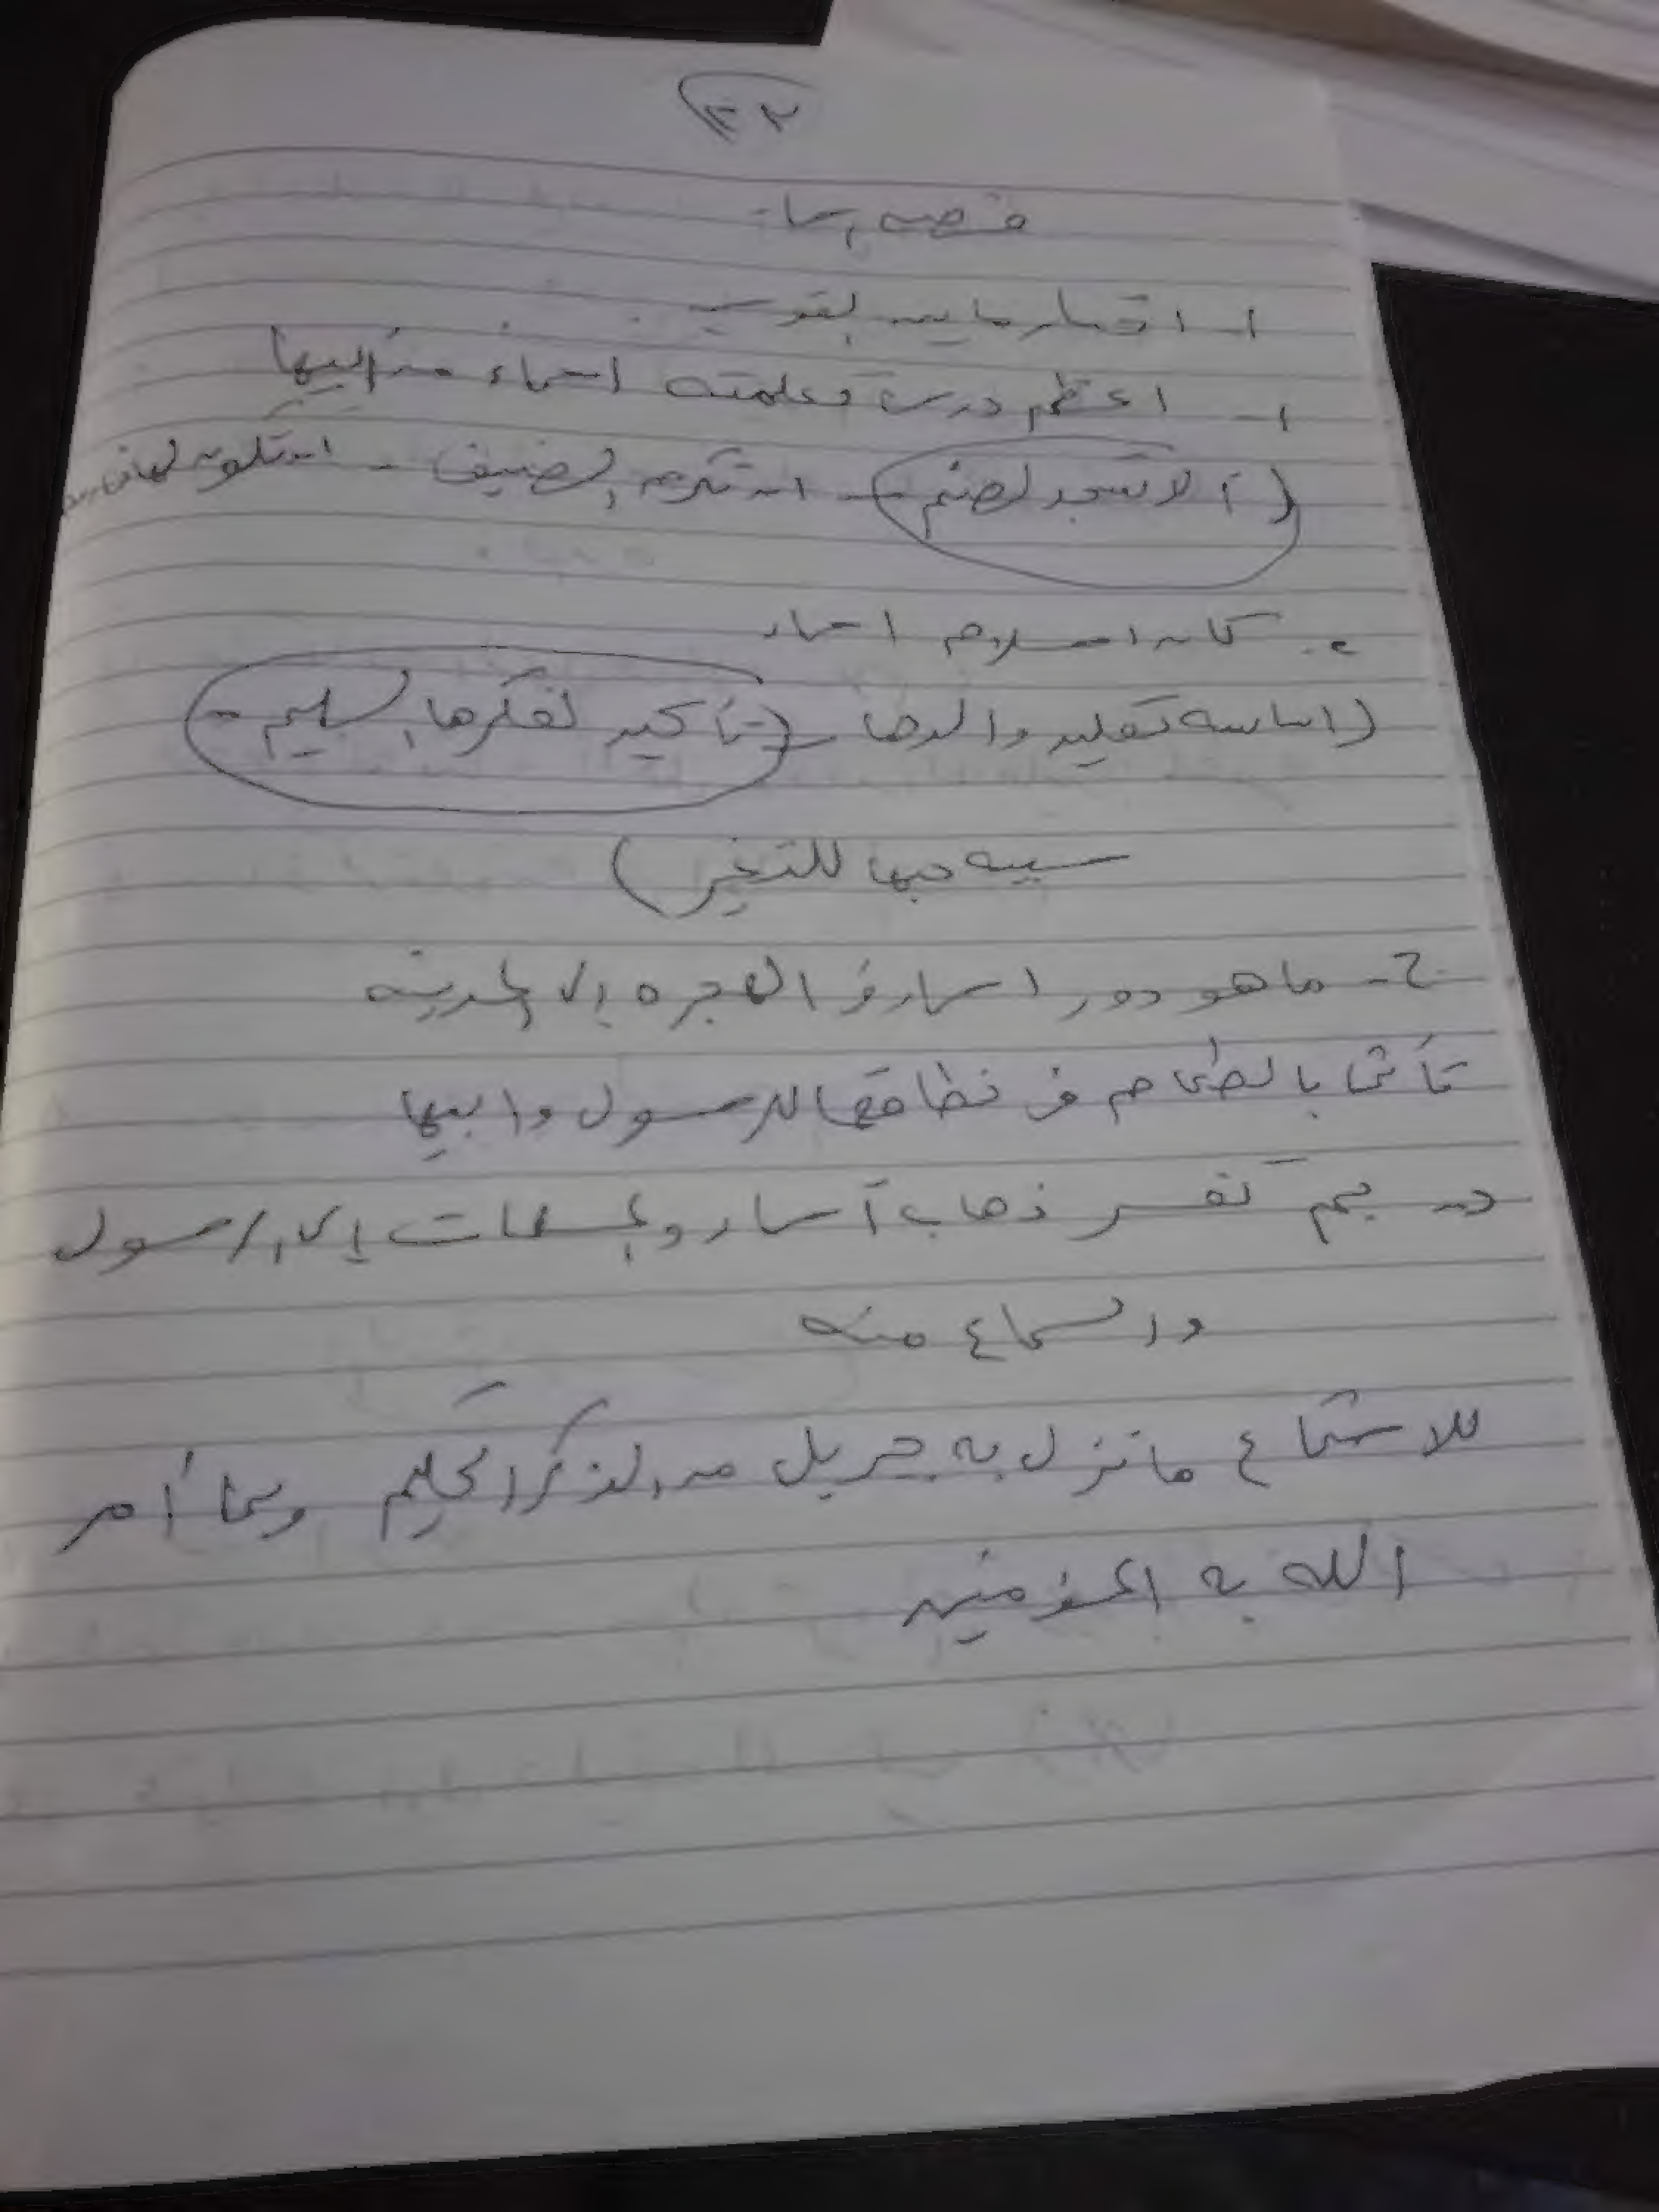 ٣٢
قصه اسماء
أ- اختار مما بين القوسين
١- اعظم درس تعلمته اسماء من ابيها
(ألا تسجد لصنم - ان تكرم الضيف - ان تكون لها
٢- كان اسلام اسماء
(اساسه تقليد والدها - (تأكيد لفكرها السليم -
سببه حبها للتغير)
ج- ما هو دور اسماء في الهجره إلى المدينه
تأتى بالطعام فى نطاقها للرسول وابيها
د- بم تفسر ذهاب أسماء والمسلمات إلى الرسول
والسماع منه
للاستماع ما نزل به جبريل من الذكر الحكيم وبما أمر
الله به المؤمنين